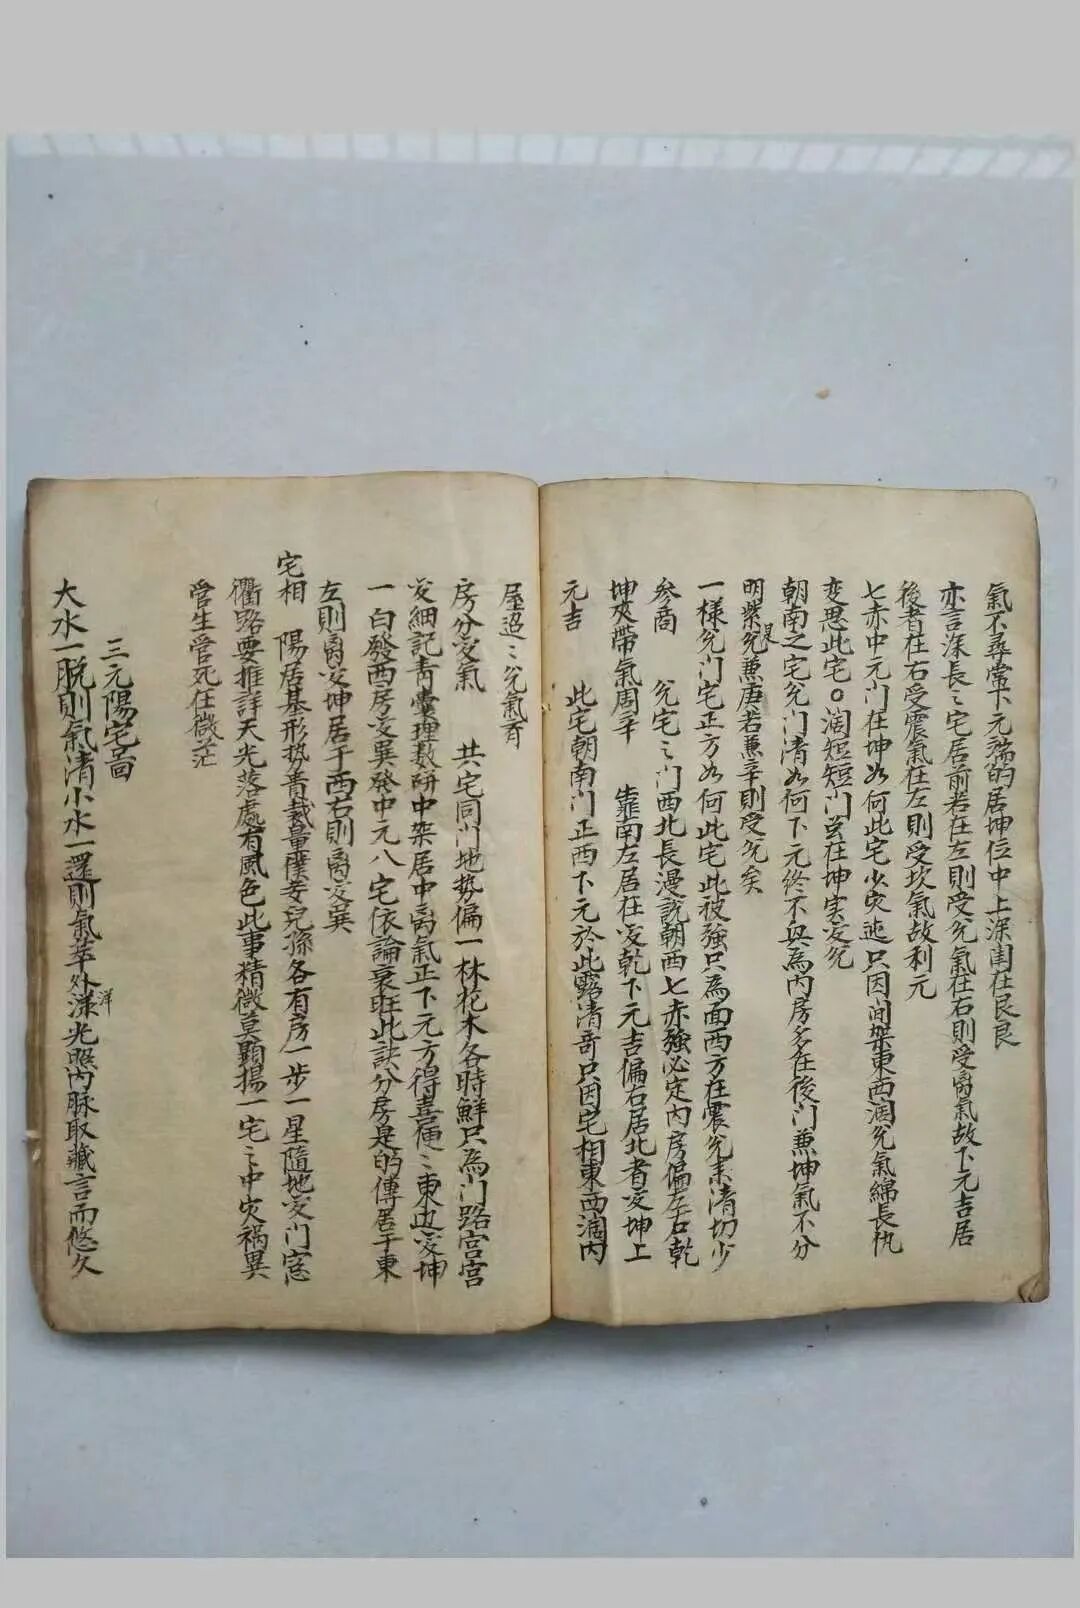 氣不尋常下元端的居坤位中上深閨在艮艮
亦言深長〻宅居前者在左則受兌氣在右則受离氣故下元吉居
後者在右受震氣在左則受坎氣故利元
七赤中元门在坤如何此宅少灾迍只因间架東西濶兌氣綿長执
变思此宅○濶短短门虽在坤实受兌
朝南之宅兌门清如何下元終不興為内房多在後门兼坤氣不分
明紫兌是兼庚若兼辛則受兌矣
一樣兌门宅正方如何此宅此被強只為面西方在震兌来清切少
參商　兌宅〻门西北長漫説朝西七赤強必定内房偏左右乾
坤夾帶氣周辛　靠南左居在受乾下元吉偏右居北者受坤上
元吉　此宅朝南门正西下元於此露清奇只因宅相東西濶内
屋迢〻兌氣齐
房分受氣　共宅同门地势偏一林花木各時鮮只為门路宮宮
受細記青囊理数研中架居中离氣正下元方得喜便〻東边受坤
一白發西房受巽發中元八宅依論衰旺此訣分房是的傳居于東
左則离受坤居于西右則离受巽
宅相　陽居基形势青裁量僕妾兒孫各有房一步一星隨地受门窓
衢路要推詳天光落處有風色此事精微莫顯揚一宅〻中灾祸異
管生管死在微茫
三元陽宅啚
大水一脱則氣清小水一還則氣萃外漾洋光照内脉取藏言而悠久